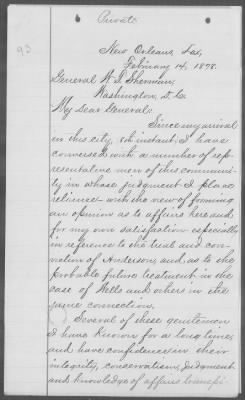 Private
93
New Orleans, La,
February 14, 1878.
General W. T. Sherman,
Washington, D. C.
My Dear General:
Since my arrival
in this city, 8th instant, I have
conversed with a number of rep-
resentative men of this communi-
ty in whose judgment I place
reliance - with the view of forming
an opinion as to affairs here and
for my own satisfaction especially
in reference to the trial and con-
viction of Anderson, and as to the
probable future treatment in the
case of Wells and others in the
same connection.
Several of these gentlemen
I have known for a long time,
and have confidence in their
integrity, conservatism, judgment
and knowledge of affairs